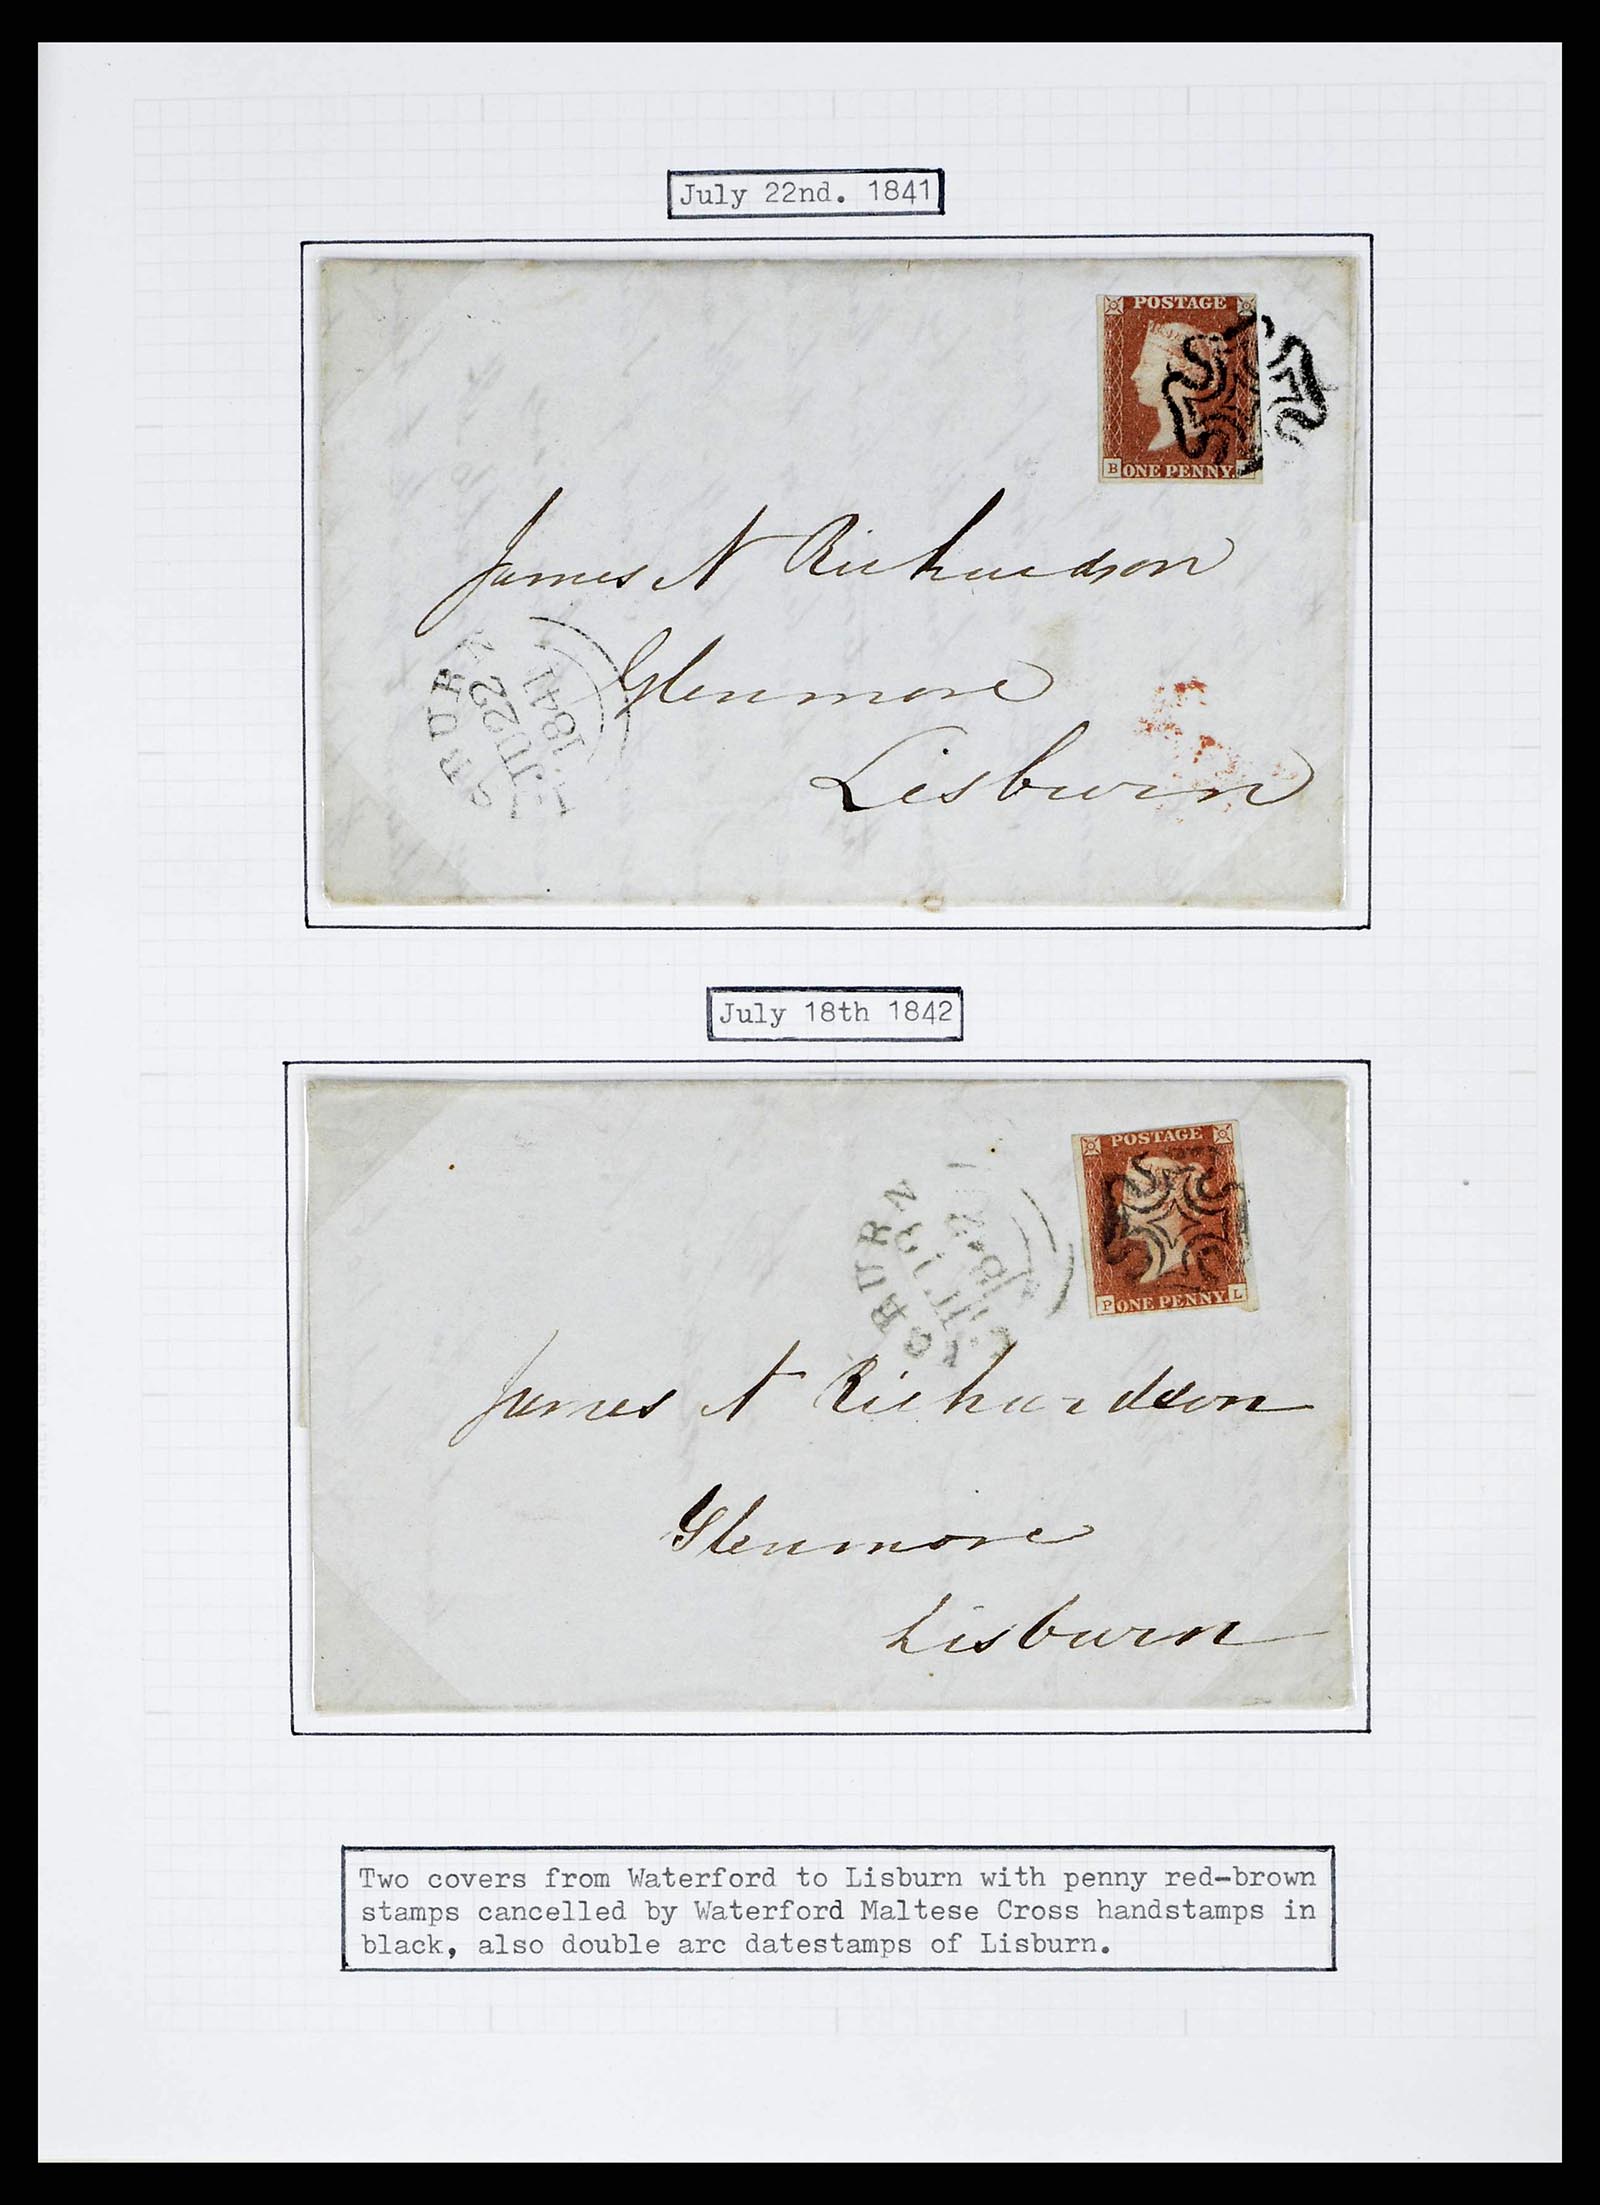 July 22nd. 1841
POSTAGE
B ONE PENNY
James N Richardson
Glenmore
Lisburn
SBURN
JU 22
1841
July 18th 1842
POSTAGE
P ONE PENNY L
BURN
James N Richardson
Glenmore
Lisburn
Two covers from Waterford to Lisburn with penny red-brown
stamps cancelled by Waterford Maltese Cross handstamps in
black, also double arc datestamps of Lisburn.